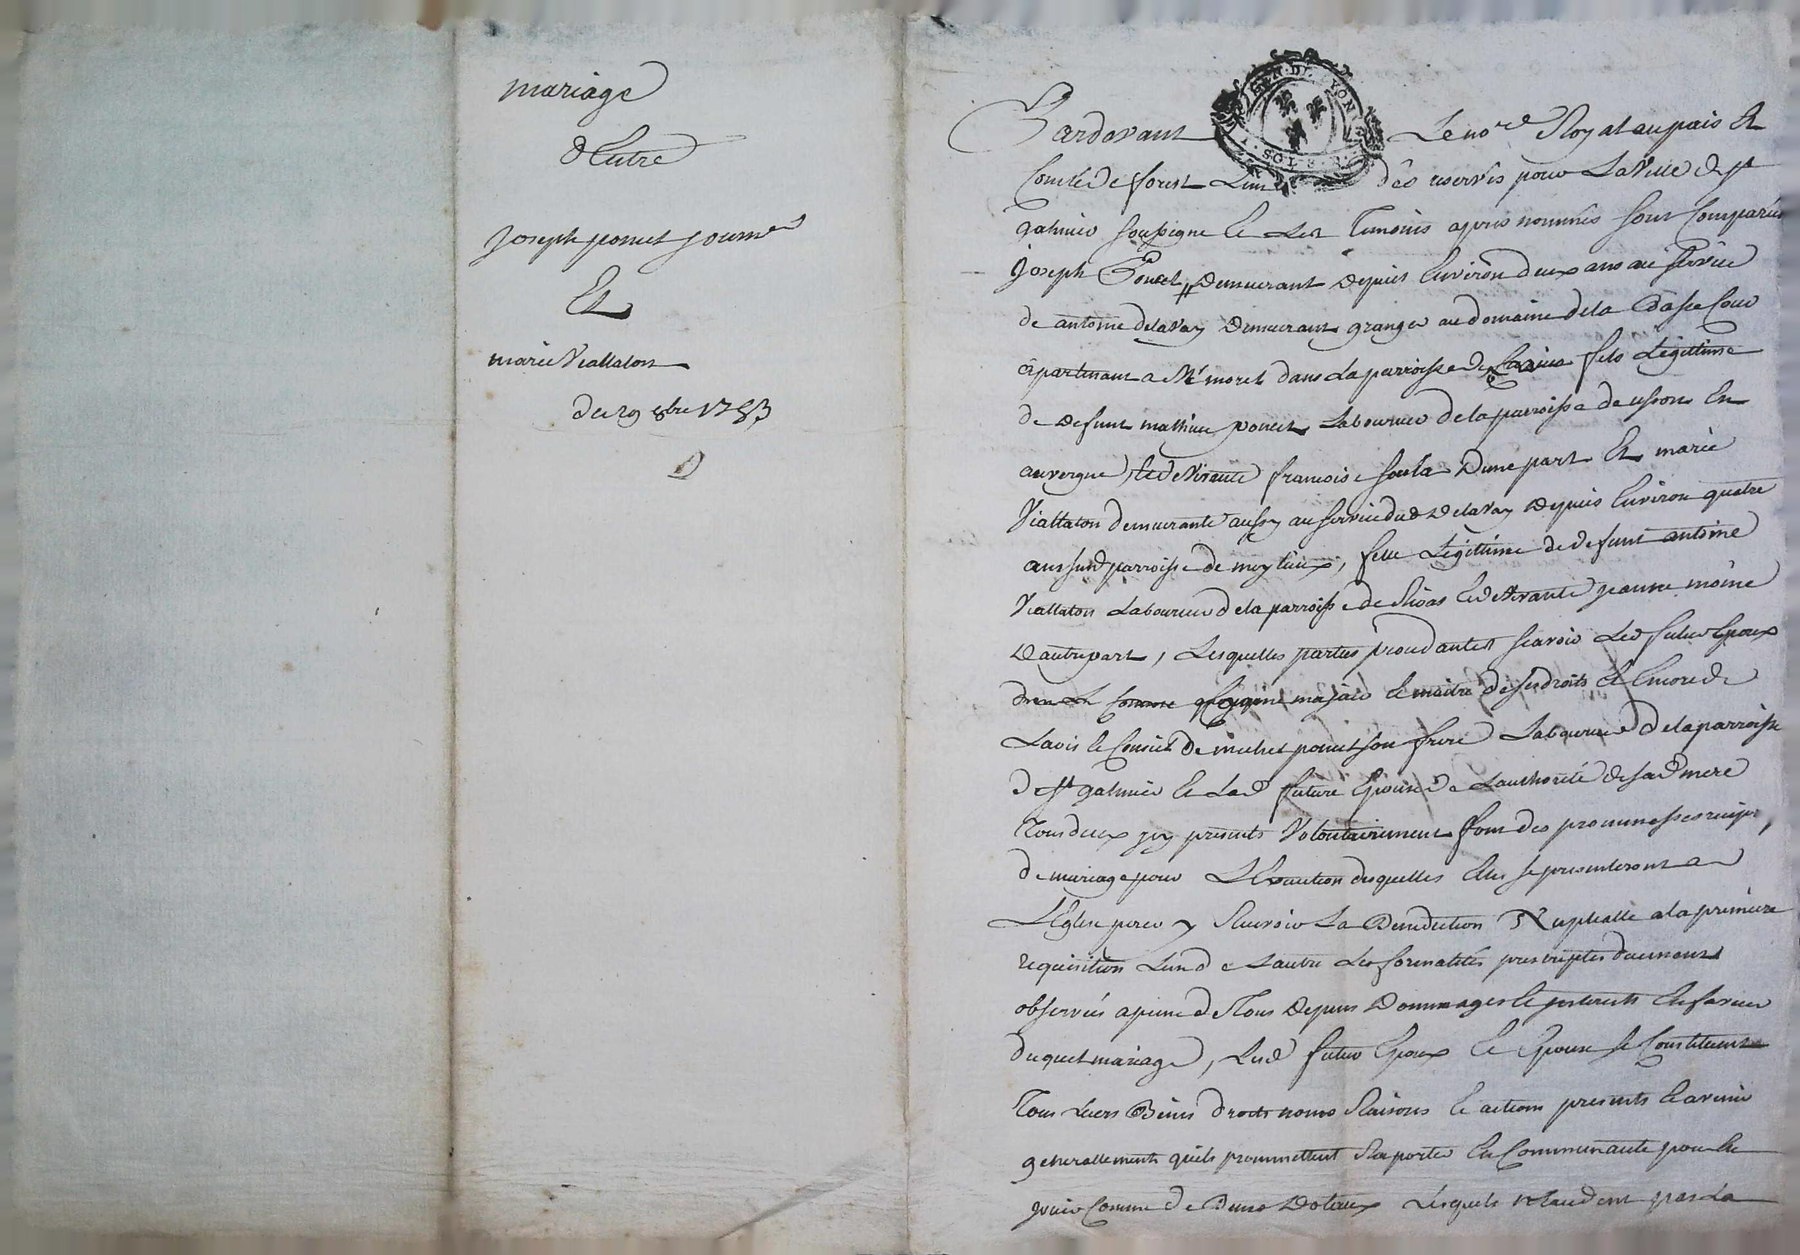 mariage
d'Entre
Joseph poncet journer
Et
marie Viallaton
du 29 8bre 1783
GEN. DE LYON
SOLS
Pardevant Le no.re Royal au pais Et
Comté de forest Lun des reservés pour La Ville de St
galmier soussigné Et Les Temoins après nommés sont Comparus
Joseph Poncet, Demeurant Depuis Environ deux ans au service
de antoine delavay Demeurant granger au domaine de la Basse Cour
apartenant a Mr morel dans La parroisse de fils Légittime
de Defunt mathieu poncet Laboureur de la parroisse de usson En
auvergne, Et de Vivante francoise Dune part Et marie
Viallaton demeurante aussy au service dud Delavay Depuis Environ quatre
ans susd parroisse de , fille Légittime de defunt antoine
Viallaton Laboureur de la parroisse de Et de Vivante jeanne moine
Dautre part, Lesquelles parties procedantes scavoir Led futur Epoux
Comme majeur Et maitre de ses droits Et Encore de
Lavis Et Conseil de michel poncet son frere Laboureur de la parroisse
de St galmier Et Lad future Epouse de Lauthorité de sad mere
Tous deux icy presents Volontairement font des prommesses recipr,
de mariage pour L'Execution desquelles Elles se presenteront a
L'Eglise pour y Recevoir La Benediction Nuptialle a la premiere
requisition Lun de Lautre Les formalités prescriptes duement
observées a peine de Tous Depens Dommages Et interests En faveur
duquel mariage, Lesd futur Epoux Et Epouse se Constituent
Tous Leurs Biens droits noms Raisons Et actions presents Et avenir
generallement quils prommettent Raporter En Communauté pour En
jouir Comme de Biens Dotaux Lesquels par La